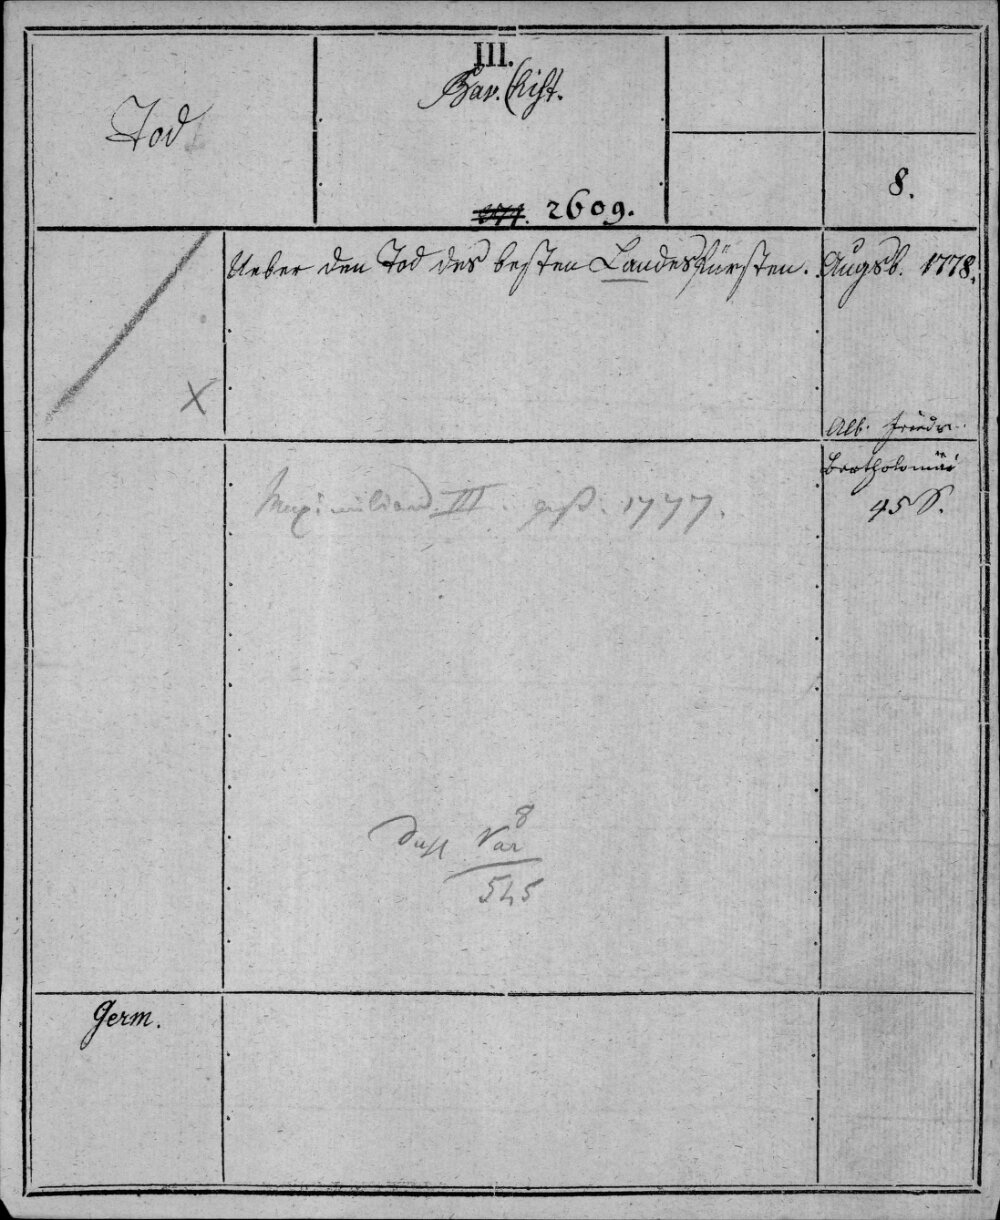 Tod
III.
Bav. Hist.
2609.
8.
Ueber den Tod des besten Landesfürsten.
Augsb. 1778.
Alb. Friedr.
Bartholomäi
45 S.
X
Maximilian III. gest. 1777.
8
Var
545
Germ.